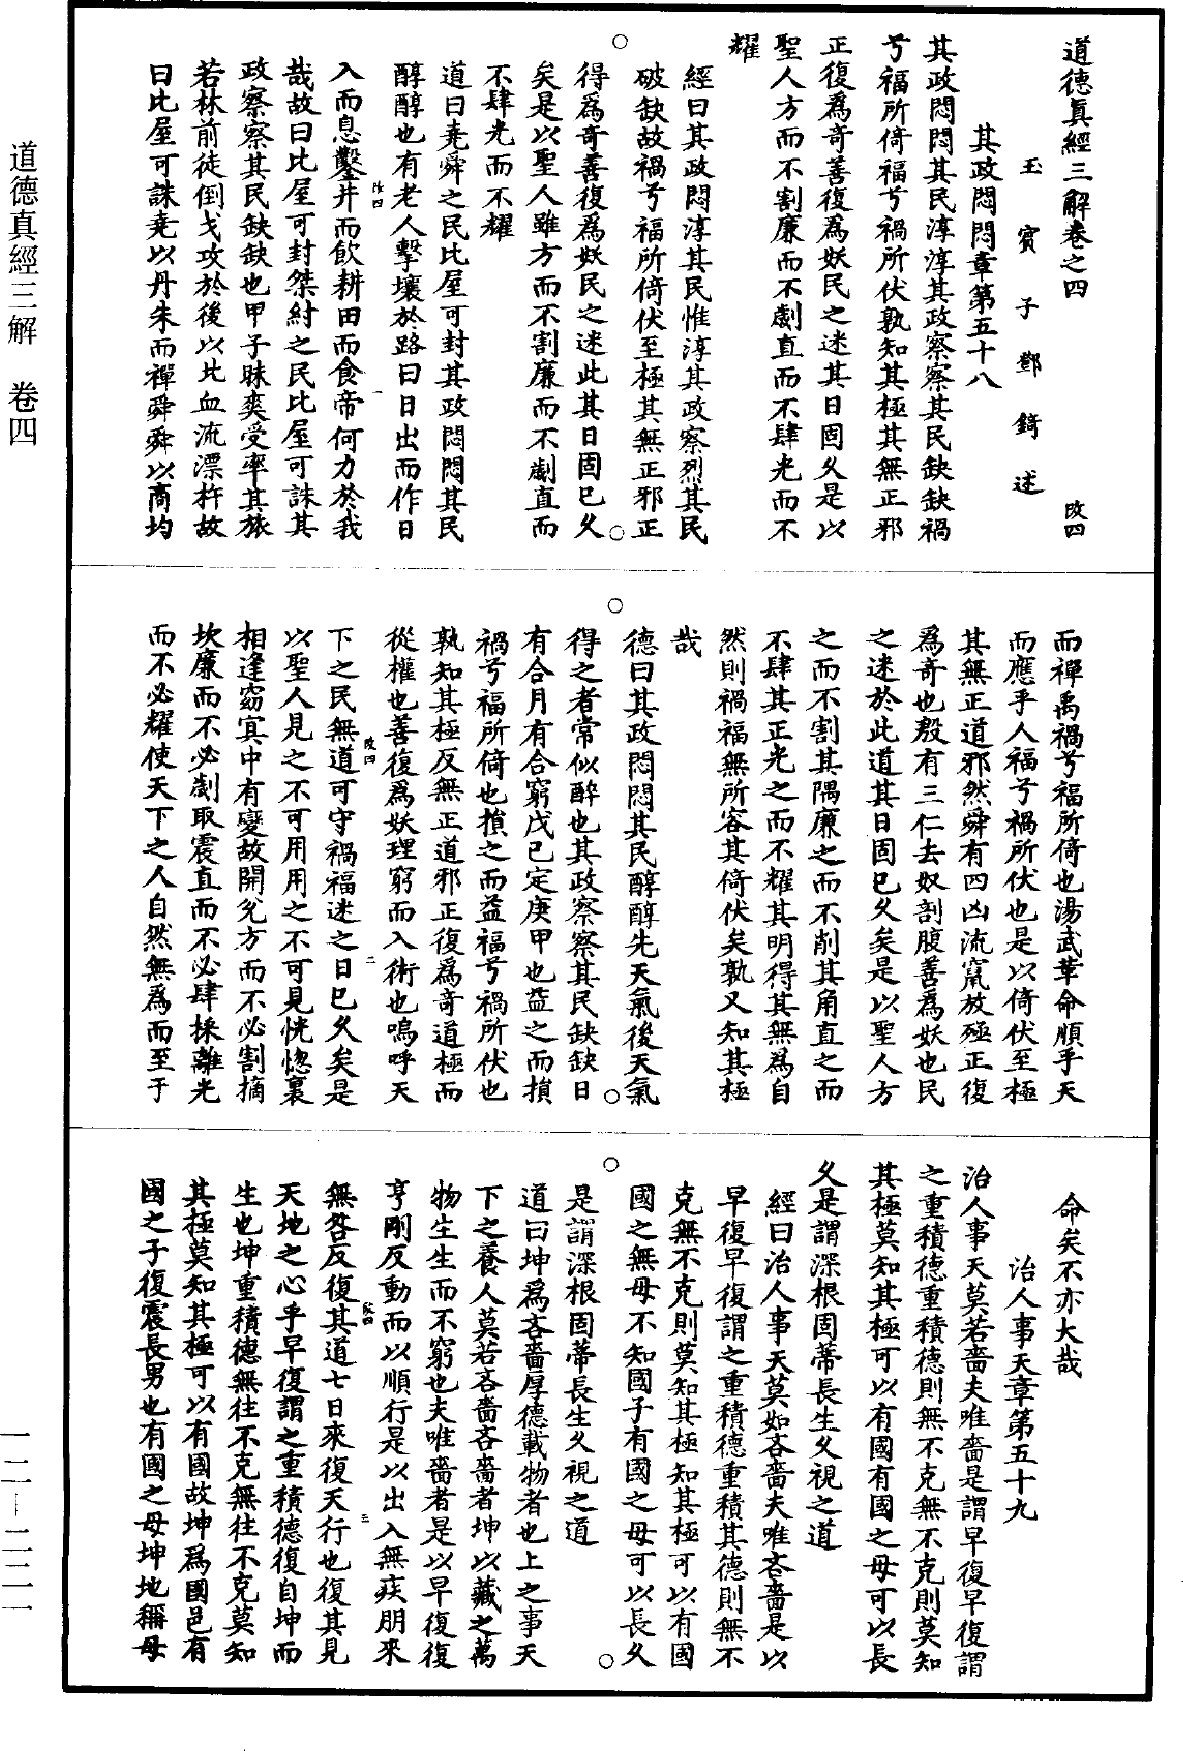 道德真經三解卷之四　改四
玉賓子鄧錡述
其政悶悶章第五十八
其政悶悶其民淳淳其政察察其民缺缺禍
兮福所倚福兮禍所伏孰知其極其無正邪
正復爲奇善復爲妖民之迷其日固久是以
聖人方而不割廉而不劌直而不肆光而不
耀
經曰其政悶淳其民惟淳其政察烈其民
破缺故禍兮福所倚伏至極其無正邪正
得爲奇善復爲妖民之迷此其日固巳久
矣是以聖人雖方而不割廉而不劌直而
不肆光而不耀
道曰堯舜之民比屋可封其政悶悶其民
醇醇也有老人擊壤於路曰日出而作日
入而息鑿井而飲耕田而食帝何力於我
哉故曰比屋可封桀紂之民比屋可誅其
政察察其民缺缺也甲子昧爽受率其旅
若林前徒倒戈攻於後以北血流漂杵故
曰比屋可誅堯以丹朱而禪舜舜以商均
而禪禹禍兮福所倚也湯武革命順乎天
而應乎人福兮禍所伏也是以倚伏至極
其無正道邪然舜有四凶流竄放殛正復
爲奇也殷有三仁去奴剖腹善爲妖也民
之迷於此道其日固巳久矣是以聖人方
之而不割其隅廉之而不削其角直之而
不肆其正光之而不耀其明得其無爲自
然則禍福無所容其倚伏矣孰又知其極
哉
德曰其政悶悶其民醇醇先天氣後天氣
得之者常似醉也其政察察其民缺缺日
有合月有合窮戊己定庚甲也益之而損
禍兮福所倚也損之而益福兮禍所伏也
孰知其極反無正道邪正復爲奇道極而
從權也善復爲妖理窮而入術也嗚呼天
下之民無道可守禍福迷之日巳久矣是
以聖人見之不可用用之不可見恍惚裏
相逢窈冥中有變故開兌方而不必割摘
坎廉而不必劌取震直而不必肆採離光
而不必耀使天下之人自然無爲而至于
命矣不亦大哉
治人事天章第五十九
治人事天莫若嗇夫唯嗇是謂早復早復謂
之重積德重積德則無不克無不克則莫知
其極莫知其極可以有國有國之母可以長
久是謂深根固蒂長生久視之道
經曰治人事天莫如吝嗇夫唯吝嗇是以
早復早復謂之重積德重積其德則無不
克無不克則莫知其極知其極可以有國
國之無母不知國子有國之母可以長久
是謂深根固蒂長生久視之道
道曰坤爲吝嗇厚德載物者也上之事天
下之養人莫若吝嗇吝嗇者坤以藏之萬
物生生而不窮也夫唯嗇者是以早復復
亨剛反動而以順行是以出入無疾朋來
無咎反復其道七日來復天行也復其見
天地之心乎早復謂之重積德復自坤而
生也坤重積德無往不克無往不克莫知
其極莫知其極可以有國故坤爲國邑有
國之子復震長男也有國之母坤地稱母
改四
一
改四
二
改四
三
道德真經三解　卷四
一二—二二一